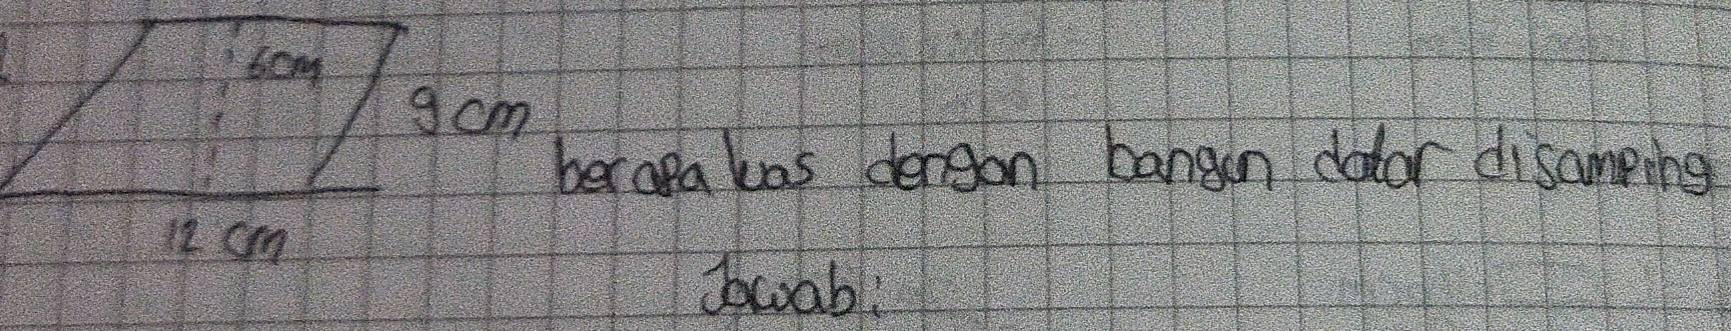 6cm
9 cm
berapa luas dengan bangun datar disamping
12 cm
Jawab: